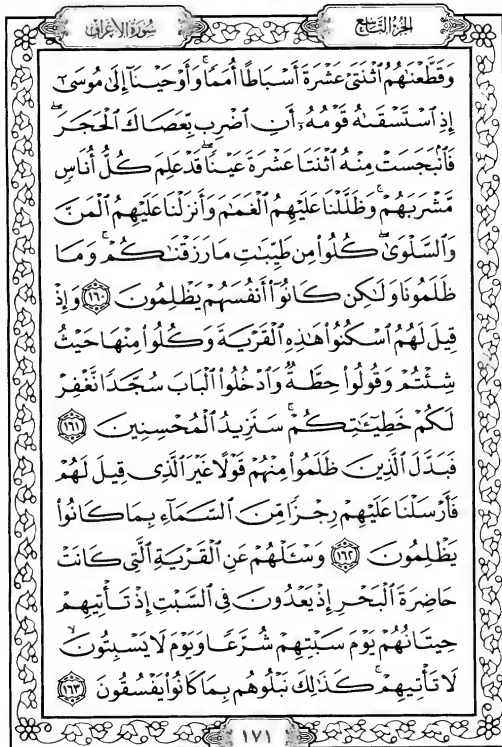 سُورَةُ الأَعْرَافِ
الجُزءُ التَّاسِعُ
وَقَطَّعْنَٰهُمُ ٱثْنَتَىْ عَشْرَةَ أَسْبَاطًا أُمَمًا ۚ وَأَوْحَيْنَآ إِلَىٰ مُوسَىٰٓ
إِذِ ٱسْتَسْقَىٰهُ قَوْمُهُۥٓ أَنِ ٱضْرِب بِّعَصَاكَ ٱلْحَجَرَ ۖ
فَٱنۢبَجَسَتْ مِنْهُ ٱثْنَتَا عَشْرَةَ عَيْنًا ۖ قَدْ عَلِمَ كُلُّ أُنَاسٍ
مَّشْرَبَهُمْ ۚ وَظَلَّلْنَا عَلَيْهِمُ ٱلْغَمَٰمَ وَأَنزَلْنَا عَلَيْهِمُ ٱلْمَنَّ
وَٱلسَّلْوَىٰ ۖ كُلُوا۟ مِن طَيِّبَٰتِ مَا رَزَقْنَٰكُمْ ۚ وَمَا
ظَلَمُونَا وَلَٰكِن كَانُوٓا۟ أَنفُسَهُمْ يَظْلِمُونَ ١٦٠ وَإِذْ
قِيلَ لَهُمُ ٱسْكُنُوا۟ هَٰذِهِ ٱلْقَرْيَةَ وَكُلُوا۟ مِنْهَا حَيْثُ
شِئْتُمْ وَقُولُوا۟ حِطَّةٌ وَٱدْخُلُوا۟ ٱلْبَابَ سُجَّدًا نَّغْفِرْ
لَكُمْ خَطِيٓـَٰٔتِكُمْ ۚ سَنَزِيدُ ٱلْمُحْسِنِينَ ١٦١
فَبَدَّلَ ٱلَّذِينَ ظَلَمُوا۟ مِنْهُمْ قَوْلًا غَيْرَ ٱلَّذِى قِيلَ لَهُمْ
فَأَرْسَلْنَا عَلَيْهِمْ رِجْزًا مِّنَ ٱلسَّمَآءِ بِمَا كَانُوا۟
يَظْلِمُونَ ١٦٢ وَسْـَٔلْهُمْ عَنِ ٱلْقَرْيَةِ ٱلَّتِى كَانَتْ
حَاضِرَةَ ٱلْبَحْرِ إِذْ يَعْدُونَ فِى ٱلسَّبْتِ إِذْ تَأْتِيهِمْ
حِيتَانُهُمْ يَوْمَ سَبْتِهِمْ شُرَّعًا وَيَوْمَ لَا يَسْبِتُونَ ۙ
لَا تَأْتِيهِمْ ۚ كَذَٰلِكَ نَبْلُوهُم بِمَا كَانُوا۟ يَفْسُقُونَ ١٦٣
١٧١